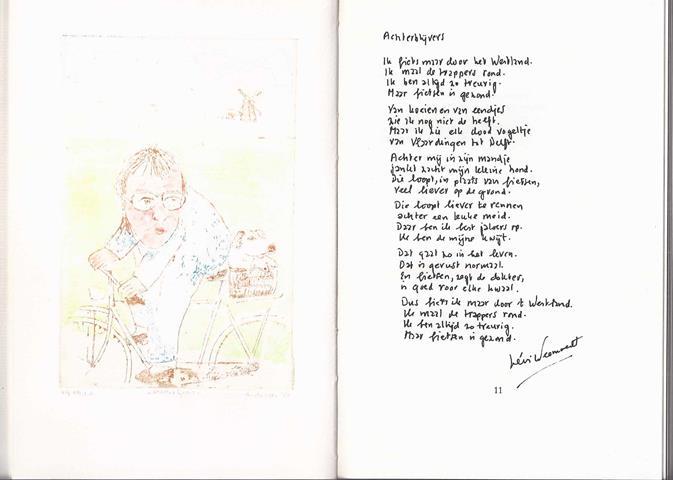 Achterblijvers
Ik fiets maar door het Westland.
Ik maal de trappers rond.
Ik ben altijd zo treurig.
Maar fietsen is gezond.
Van koeien en van eendjes
zie ik nog niet de helft.
Maar ik zie elk dood vogeltje
van Vlaardingen tot Delft.
Achter mij in zijn mandje
jankt zacht mijn kleine hond.
Die loopt, in plaats van fietsen,
veel liever op de grond.
Die loopt liever te rennen
achter een leuke meid.
Daar ben ik best jaloers op.
Ik ben de mijne kwijt.
Dat gaat zo in het leven.
Dat is gerust normaal.
En fietsen, zegt de dokter,
is goed voor elke kwaal.
Dus fiets ik maar door 't Westland.
Ik maal de trappers rond.
Ik ben altijd zo treurig.
Maar fietsen is gezond.
Lévi Weemoedt
11